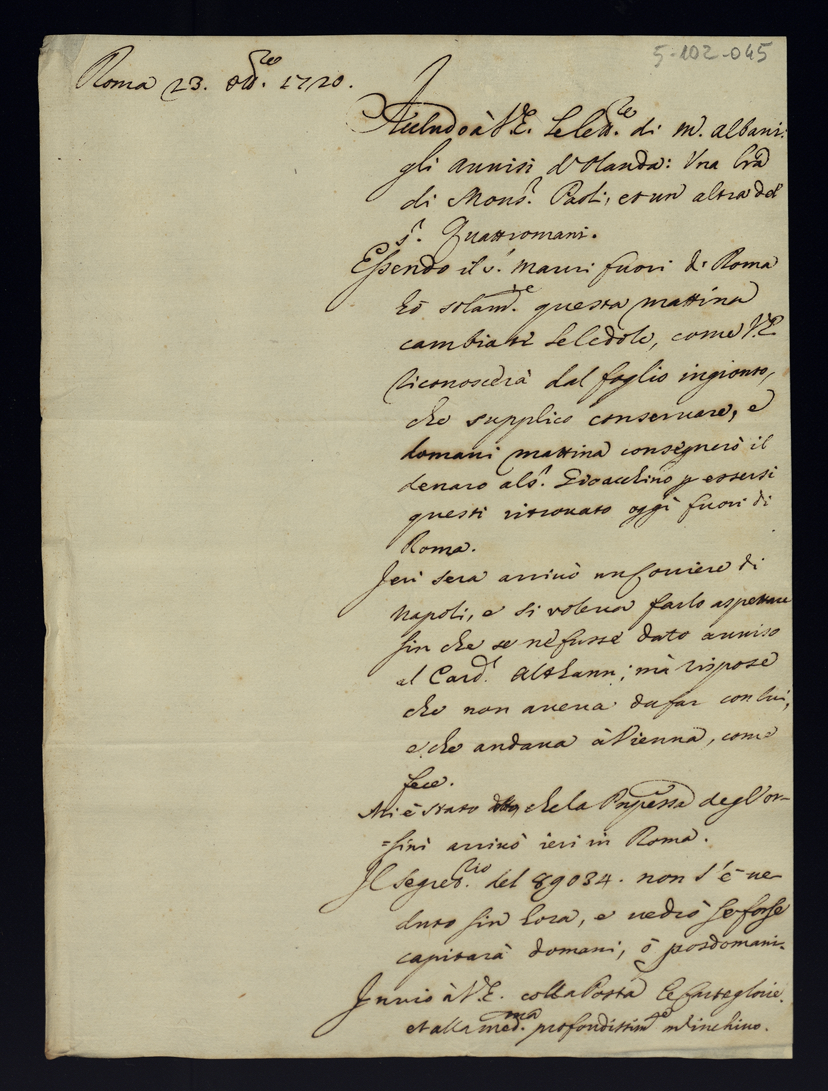 5-102-045
Roma 23. Ott.re 1720.
Accludo à V.E. le lett.re di m. Albani:
gli auuisi d'Olanda: Vna l'ra
di Mons.r Paoli, et un altra del
s.r Quattromani.
Essendo il s.r Mauri fuori di Roma
hò solam.te questa mattina
cambiate le Cedole, come V.E.
riconoscerà dal foglio ingionto,
che supplico conseruare, e
domani mattina consegnerò il
denaro al s.r Gioacchino p essersi
questi ritrouato oggi fuori di
Roma.
Jeri sera arriuò un Corriere di
Napoli, e si voleua farlo aspettare
sin che se ne fusse dato auuiso
al Card.l Althann; mà rispose
che non aueua da far con lui,
e che andaua à Vienna, come
fece.
Mi è stato che la Prñpessa degl'Or-
=sini arriuò ieri in Roma.
Il segret.rio del 89034. non s'è ue-
duto sin hora, e uedrò se forse
capitarà domani, ò posdomani.
Inuio à V.E. colla Posta le
et alla med.ma profondissim.te m'inchino.